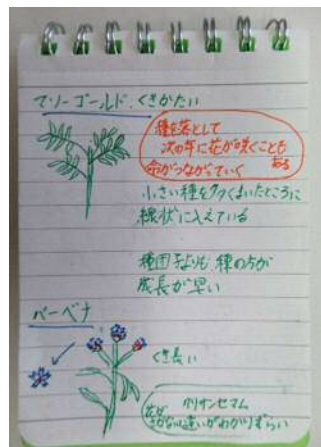 マリーゴールド、くきかたい
種を落として
次の年に花が咲くことも
ある
命がつながっていく
小さい種を多くまいたところに
線状に入えている
種団子よりも、種の方が
成長が早い
バーベナ
くき長い
クリサンセマム
花が
さかないと違いがわかりずらい